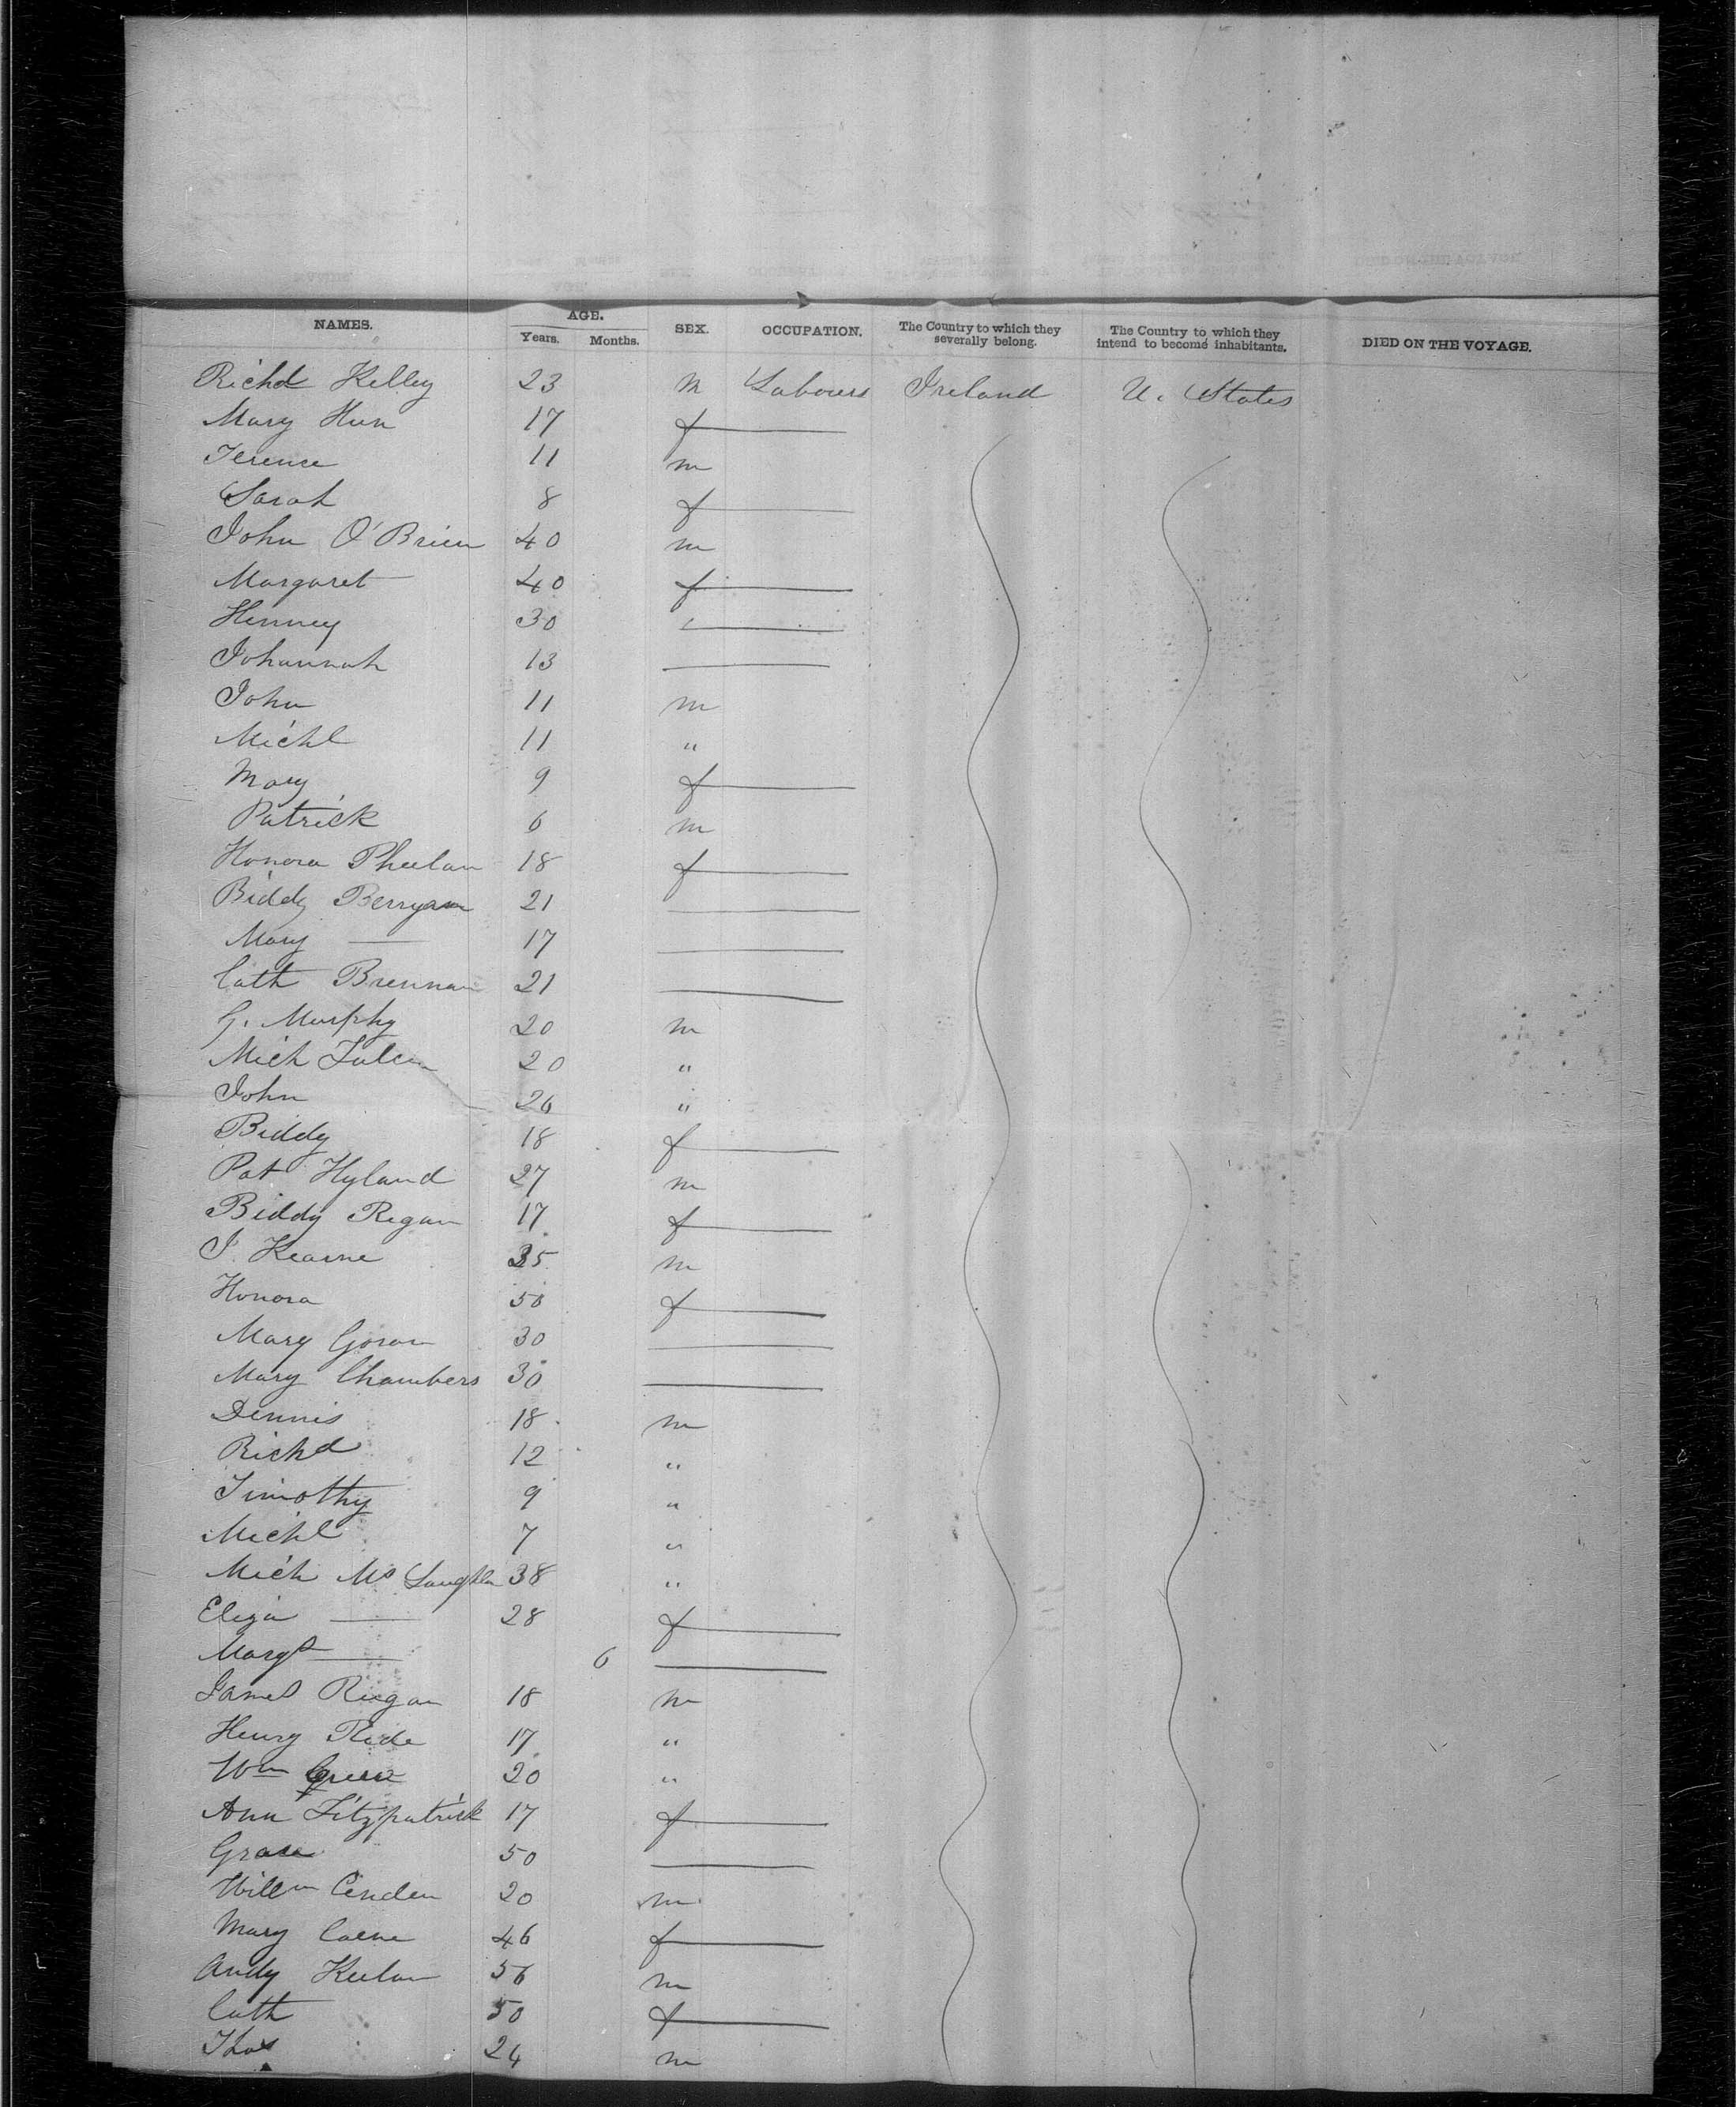 NAMES. AGE. Years. Months. SEX. OCCUPATION. The Country to which they severally belong. The Country to which they intend to become inhabitants. DIED ON THE VOYAGE.
Richd Kelley 23 m Labourer Ireland U. States
Mary Hun 17 f
Terence 11 m
Sarah 8 f
John O'Brien 40 m
Margaret 40 f
Henney 30
Johannah 13
John 11 m
Michl 11 "
Mary 9 f
Patrick 6 m
Honora Pheelan 18 f
Biddy 21
Mary — 17
Cath Brennan 21
G. Murphy 20 m
Mich 20 "
John 26 "
Biddy 18 f
Pat Hyland 27 m
Biddy Regan 17 f
J. Kearne 35 m
Honora 50 f
Mary Goran 30
Mary Chambers 30
Dennis 18 m
Richd 12 "
Timothy 9 "
Michl 7 "
Mich Mc Laughlin 38 "
Eliza — 28 f
Margt — 6
James Regan 18 m
Henry Ride 17 "
Wm 20 "
Ann Fitzpatrick 17 f
Grace 50
Willm 20 m
Mary 46 f
Andy Keelan 56 m
Cath 50 f
Thos 24 m